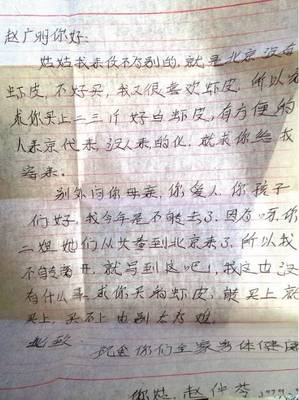 赵广明你好:
姑姑我来信不为别的,就是北京没有
虾皮,不好买,我又很喜欢虾皮,所以又
求你买上二三斤好白虾皮,有方便的
人来京代来,没人来的化,就求你给我
寄来。
别外问你母亲,你爱人,你孩子
们好,我今年是不能去了,因为
二姐她们从长春到北京来了,所以我
不能离开,就写到这吧!我这也没
有什么事,求你买的虾皮,能买上就
买上,买不上也别太为难。
此致 祝全你们全家身体健康
你姑 赵仲芩